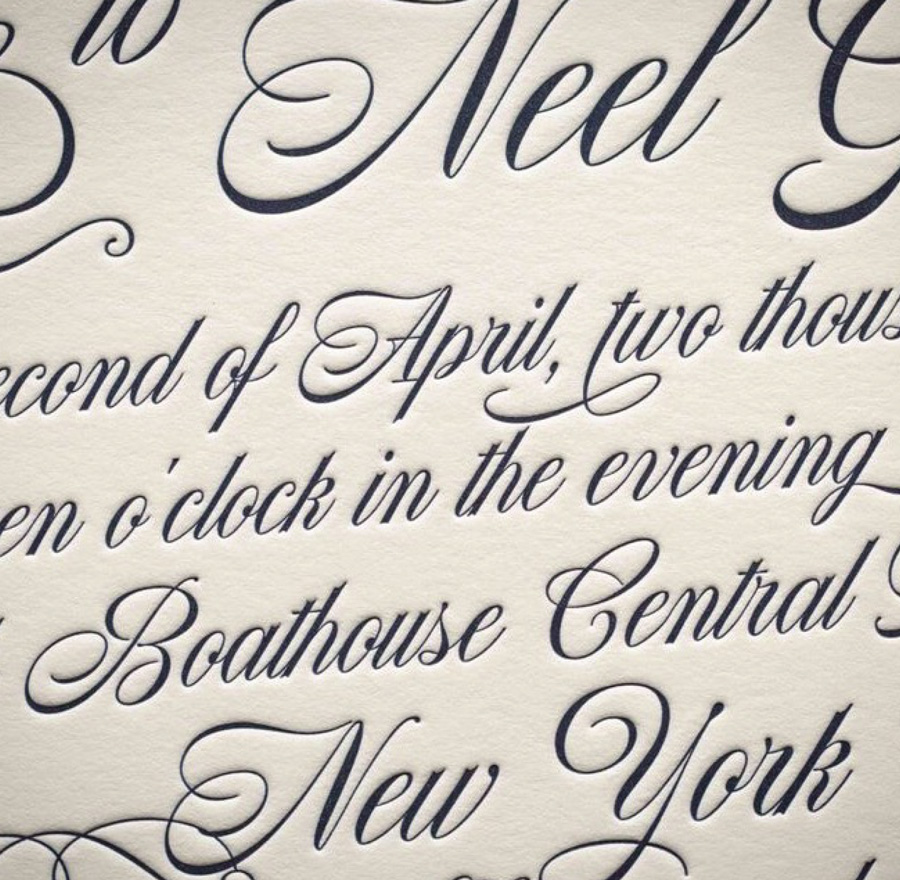 to Neel G
econd of April, two thous
en o'clock in the evening
Boathouse Central
New York